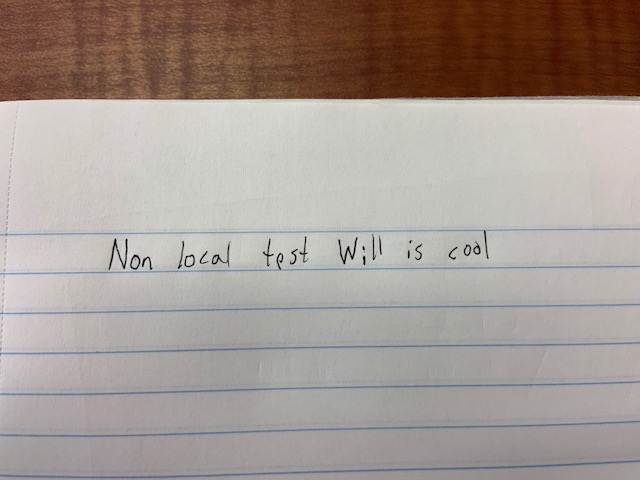 Non local test Will is cool